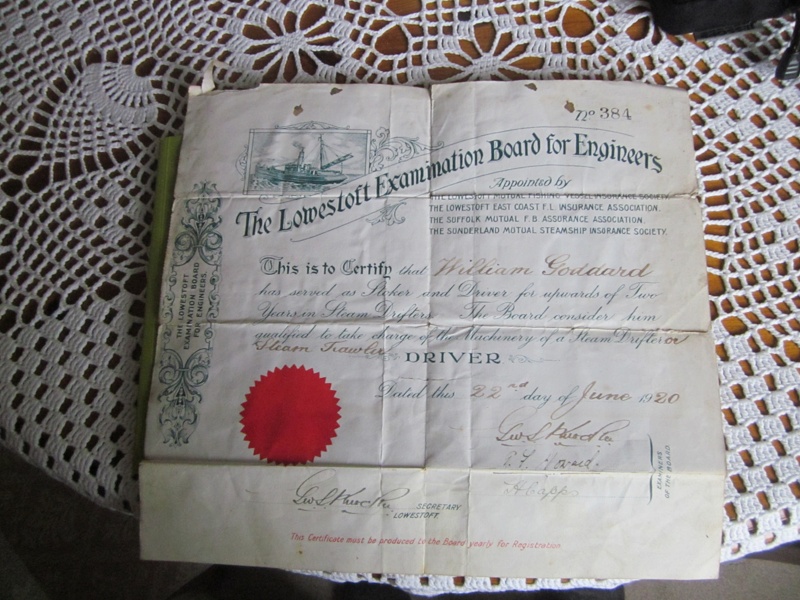 No 384
The Lowestoft Examination Board for Engineers
Appointed by
THE LOWESTOFT MUTUAL FISHING VESSEL INSURANCE SOCIETY.
THE LOWESTOFT EAST COAST F.L. INSURANCE ASSOCIATION.
THE SUFFOLK MUTUAL F.B. ASSORANCE ASSOCIATION.
THE SONDERLAND MUTUAL STEAMSHIP INSURANCE SOCIETY.
THE LOWESTOFT
EXAMINATION BOARD
FOR ENGINEERS.
This is to Certify that William Goddard
has served as Stoker and Driver for upwards of Two
Years in Steam Drifters. The Board consider him
qualified to take charge of the Machinery of a Steam Drifter or
Steam Trawler
DRIVER
Dated this 22nd day of June 1920
EXAMINERS
OF THE BOARD.
SECRETARY
LOWESTOFT.
This Certificate must be produced to the Board yearly for Registration